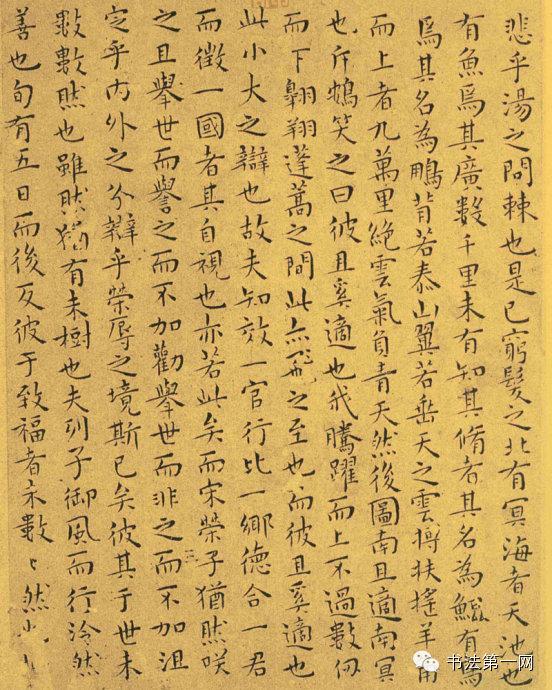 悲乎湯之問棘也是已窮髮之北有冥海者天池也
有魚焉其廣數千里未有知其脩者其名為鯤有鳥
焉其名為鵬背若泰山翼若垂天之雲摶扶搖羊角
而上者九萬里絕雲氣負青天然後圖南且適南冥
也斥鴳笑之曰彼且奚適也我騰躍而上不過數仞
而下翱翔蓬蒿之間此亦飛之至也而彼且奚適也
此小大之辯也故夫知效一官行比一鄉德合一君
而徵一國者其自視也亦若此矣而宋榮子猶然咲
之且舉世而譽之而不加勸舉世而非之而不加沮
定乎內外之分辯乎榮辱之境斯已矣彼其于世未
數數然也雖然猶有未樹也夫列子御風而行泠然
善也旬有五日而後反彼于致福者未數〻然也
书法第一网